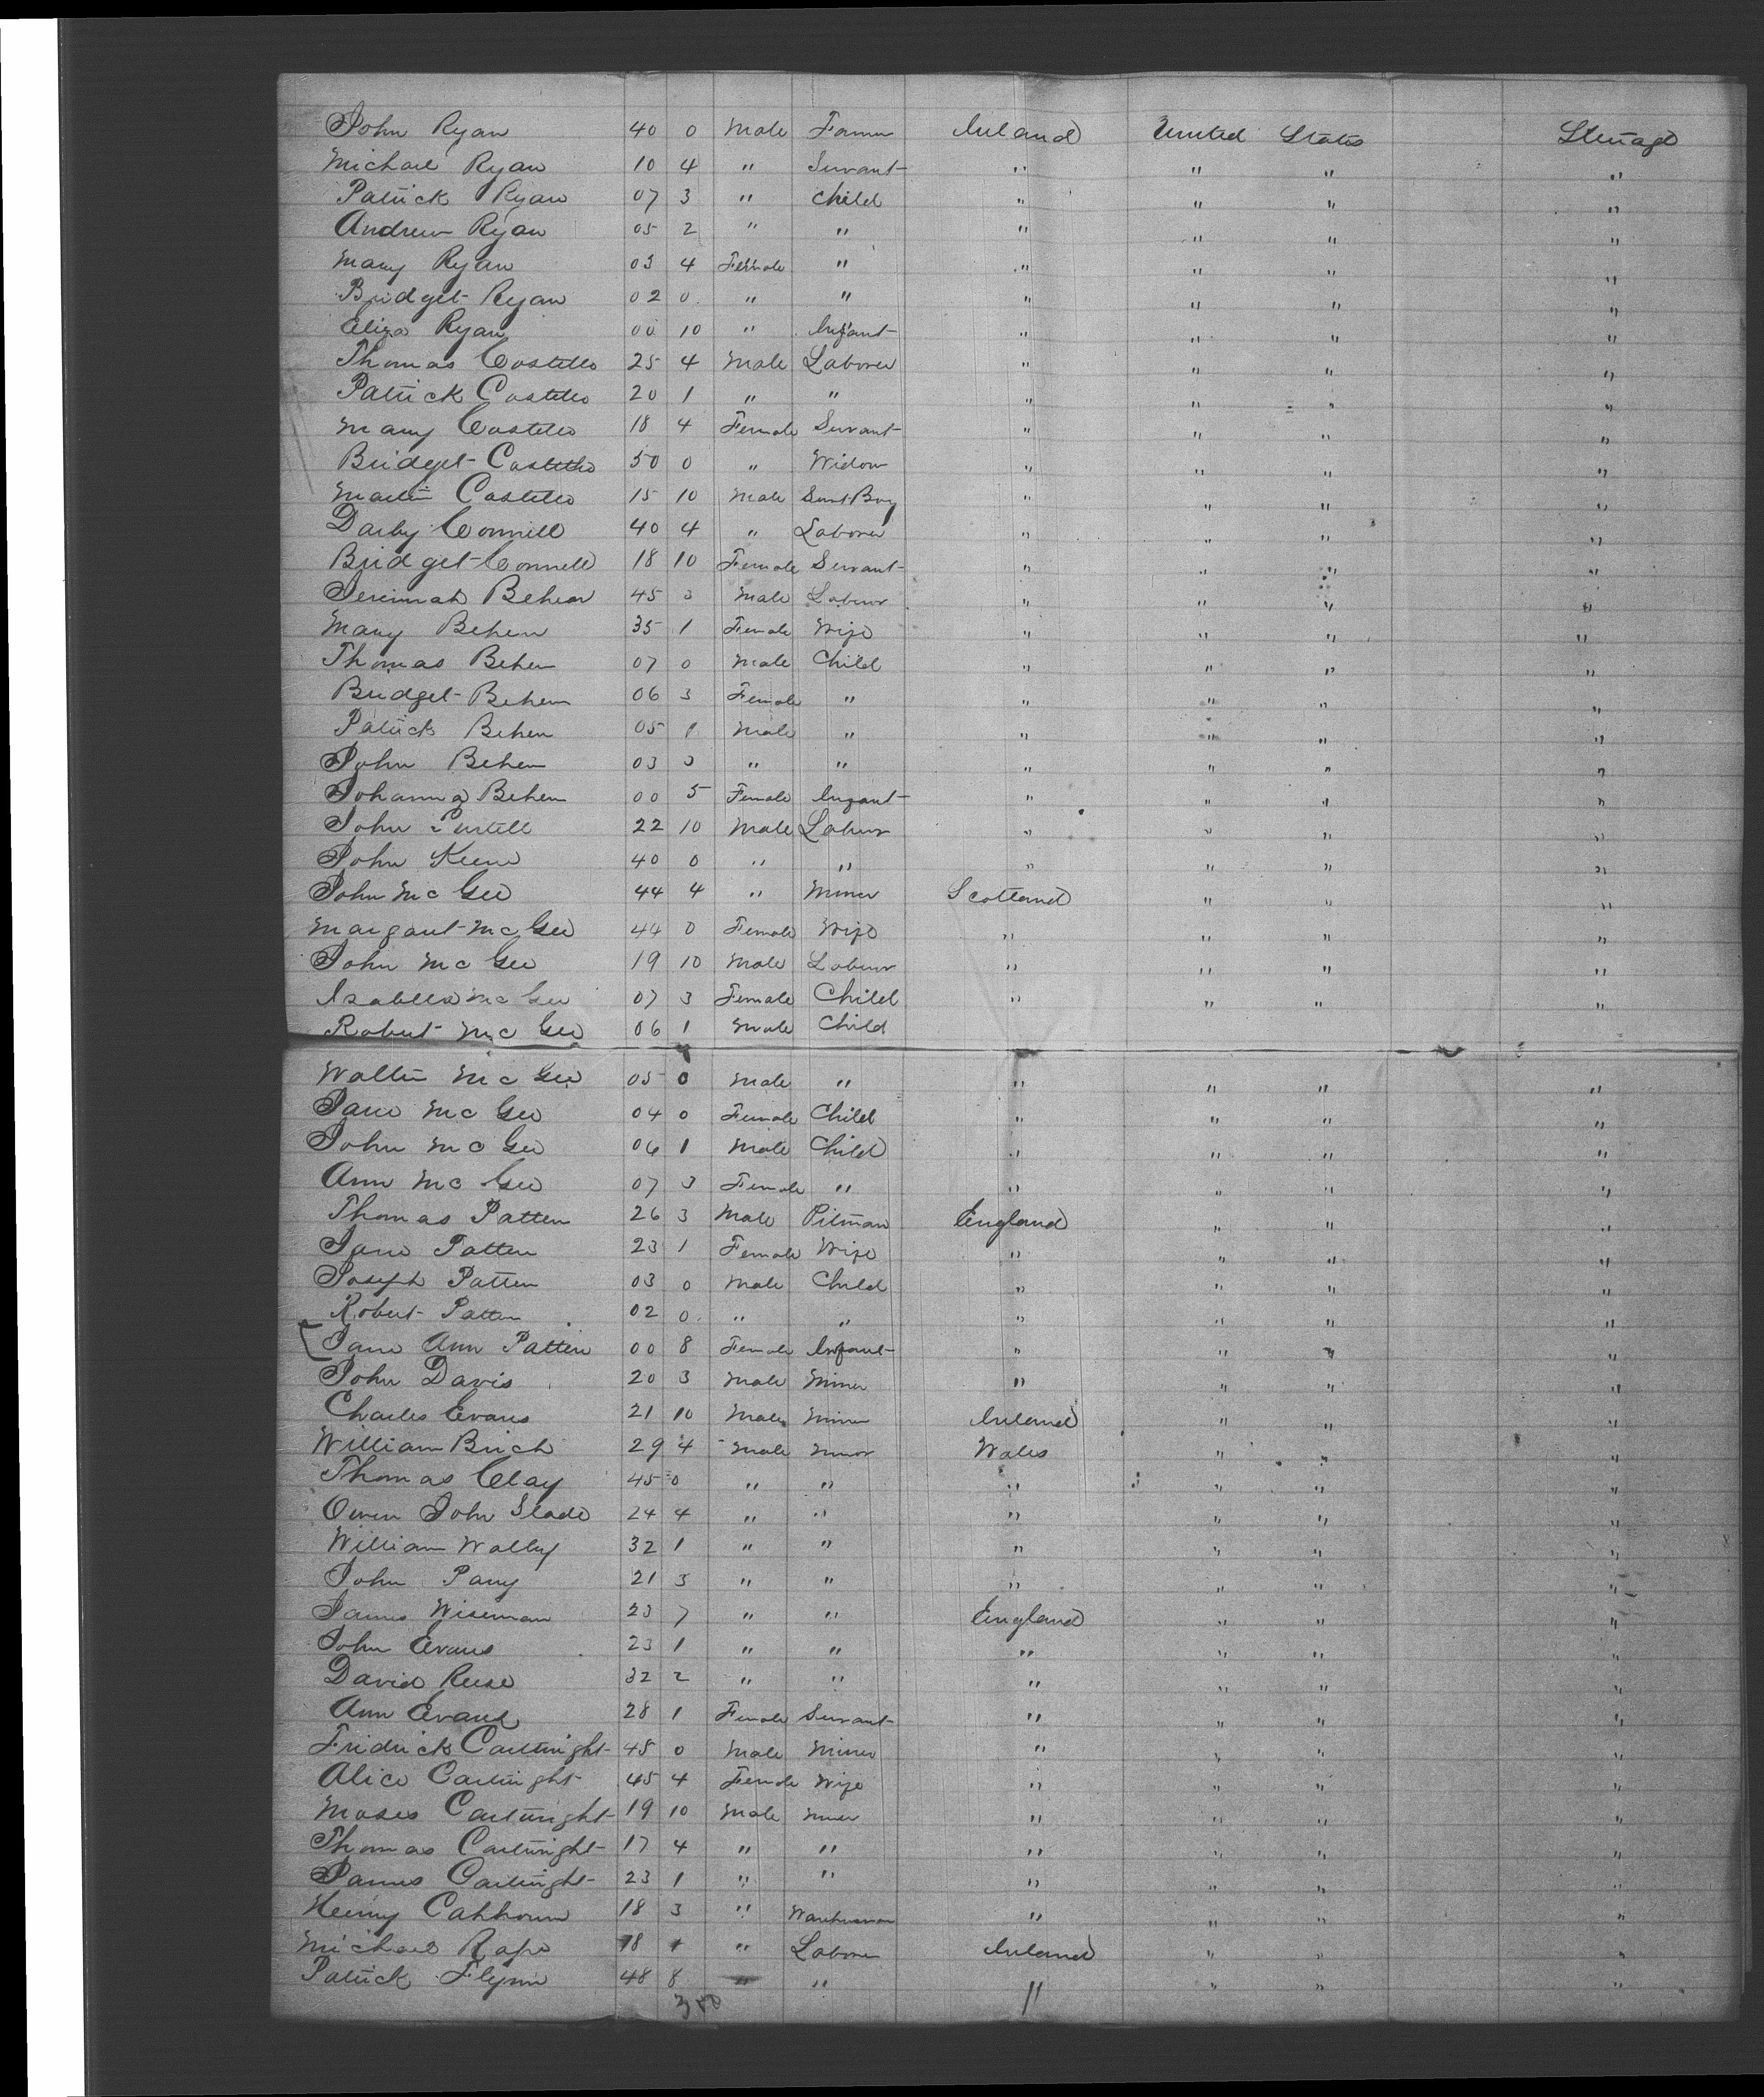 John Ryan 40 0 Male Farmer Ireland United States Steerage
Michael Ryan 10 4 " Servant " " " "
Patrick Ryan 07 3 " Child " " " "
Andrew Ryan 05 2 " " " " " "
Mary Ryan 03 4 Female " " " " "
Bridget Ryan 02 0 " " " " " "
Eliza Ryan 00 10 " Infant " " " "
Thomas Costello 25 4 Male Laborer " " " "
Patrick Costello 20 1 " " " " " "
Mary Costello 18 4 Female Servant " " " "
Bridget Costello 50 0 " Widow " " " "
Martin Costello 15 10 Male Servt Boy " " " "
Darby Connell 40 4 " Laborer " " " "
Bridget Connell 18 10 Female Servant " " " "
Jeremiah Behen 45 3 Male Laborer " " " "
Mary Behen 35 1 Female Wife " " " "
Thomas Behen 07 0 Male Child " " " "
Bridget Behen 06 3 Female " " " " "
Patrick Behen 05 1 Male " " " " "
John Behen 03 3 " " " " " "
Johanna Behen 00 5 Female Infant " " " "
John Purtell 22 10 Male Laborer " " " "
John Keene 40 0 " " " " " "
John McGee 44 4 " Miner Scotland " " "
Margaret McGee 44 0 Female Wife " " " "
John McGee 19 10 Male Laborer " " " "
Isabella McGee 07 3 Female Child " " " "
Robert McGee 06 1 Male Child
Walter McGee 05 0 Male " " " " "
Jane McGee 04 0 Female Child " " " "
John McGee 06 1 Male Child " " " "
Ann McGee 07 3 Female " " " " "
Thomas Patten 26 3 Male Pitman England " " "
Jane Patten 23 1 Female Wife " " " "
Joseph Patten 03 0 Male Child " " " "
Robert Patten 02 0 " " " " " "
Jane Ann Patten 00 8 Female Infant " " " "
John Davis 20 3 Male Miner " " " "
Charles Evans 21 10 Male Miner Ireland " " "
William Birch 29 4 Male Miner Wales " " "
Thomas Clay 45 0 " " " " " "
Owen John Slade 24 4 " " " " " "
William Walby 32 1 " " " " " "
John Parry 21 3 " " " " " "
James Wiseman 23 7 " " England " " "
John Evans 23 1 " " " " " "
David Reese 32 2 " " " " " "
Ann Evans 28 1 Female Servant " " " "
Fridrick Cartwright 45 0 Male Miner " " " "
Alice Cartwright 45 4 Female Wife " " " "
Moses Cartwright 19 10 Male Miner " " " "
Thomas Cartwright 17 4 " " " " " "
James Cartwright 23 1 " " " " " "
Henry Cahhoun 18 3 " Warehouseman " " " "
Michael Rape 18 1 " Laborer Ireland " " "
Patrick Flynn 48 8 " " " " " "